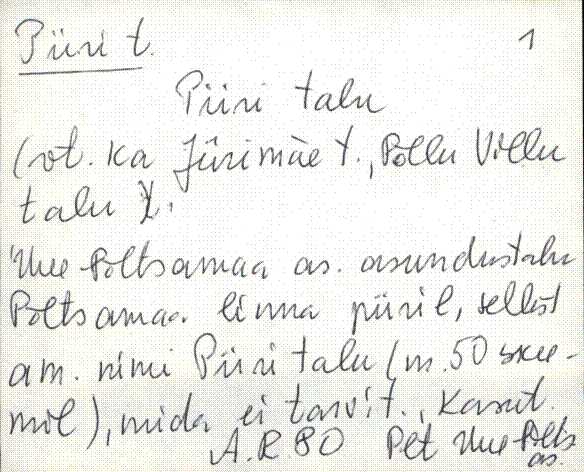 Piiri t. 1
Piiri talu
(vt. ka Jürimäe t., Põllu Villu
talu).
Uue-Põltsamaa as. asundustalu
Põltsamaa linna piiril, sellest
am. nimi Piiri talu (m. 50 skee-
mil), mida ei tarvit., kasut.
A.R 80 Plt Uue-Põlts
as.